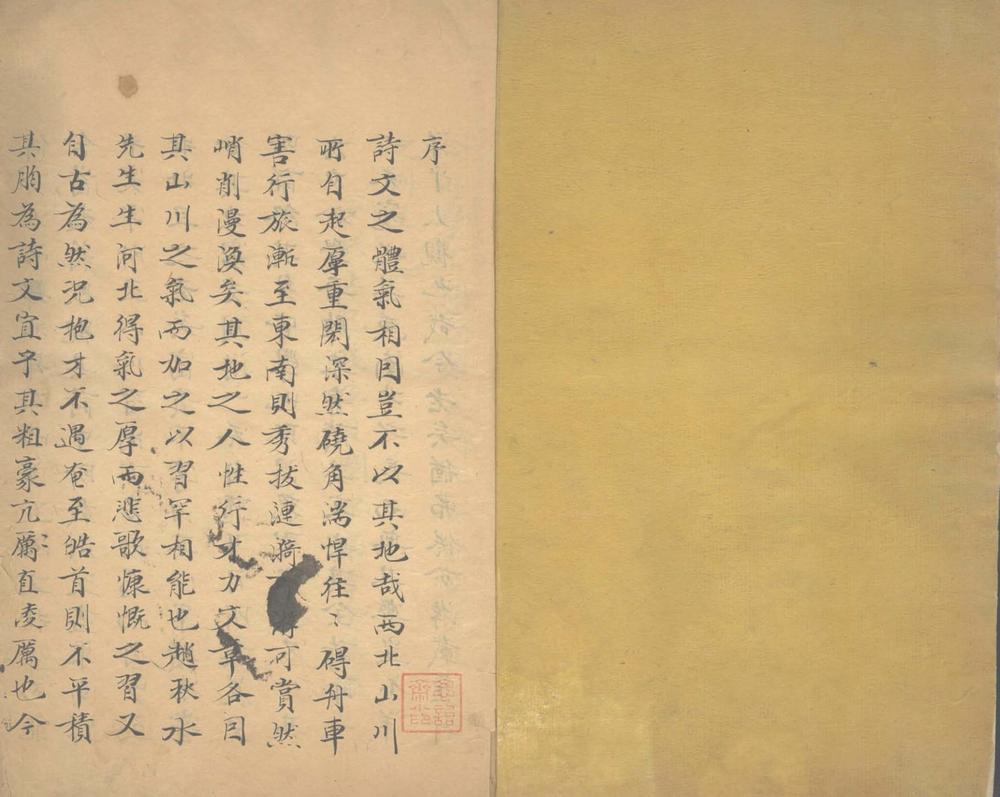 序
詩文之體氣相因豈不以其地哉西北山川
所自起厚重閎深然磽角湍悍往〻碍舟車
害行旅漸至東南則秀拔漣漪可賞然
峭削漫渙矣其地之人性行才力文章各因
其山川之氣而加之以習罕相能也趙秋水
先生生河北得氣之厚而悲歌慷慨之習又
自古為然況抱才不遇奄至皓首則不平積
其胸為詩文宜乎其粗豪亢厲直凌厲也今